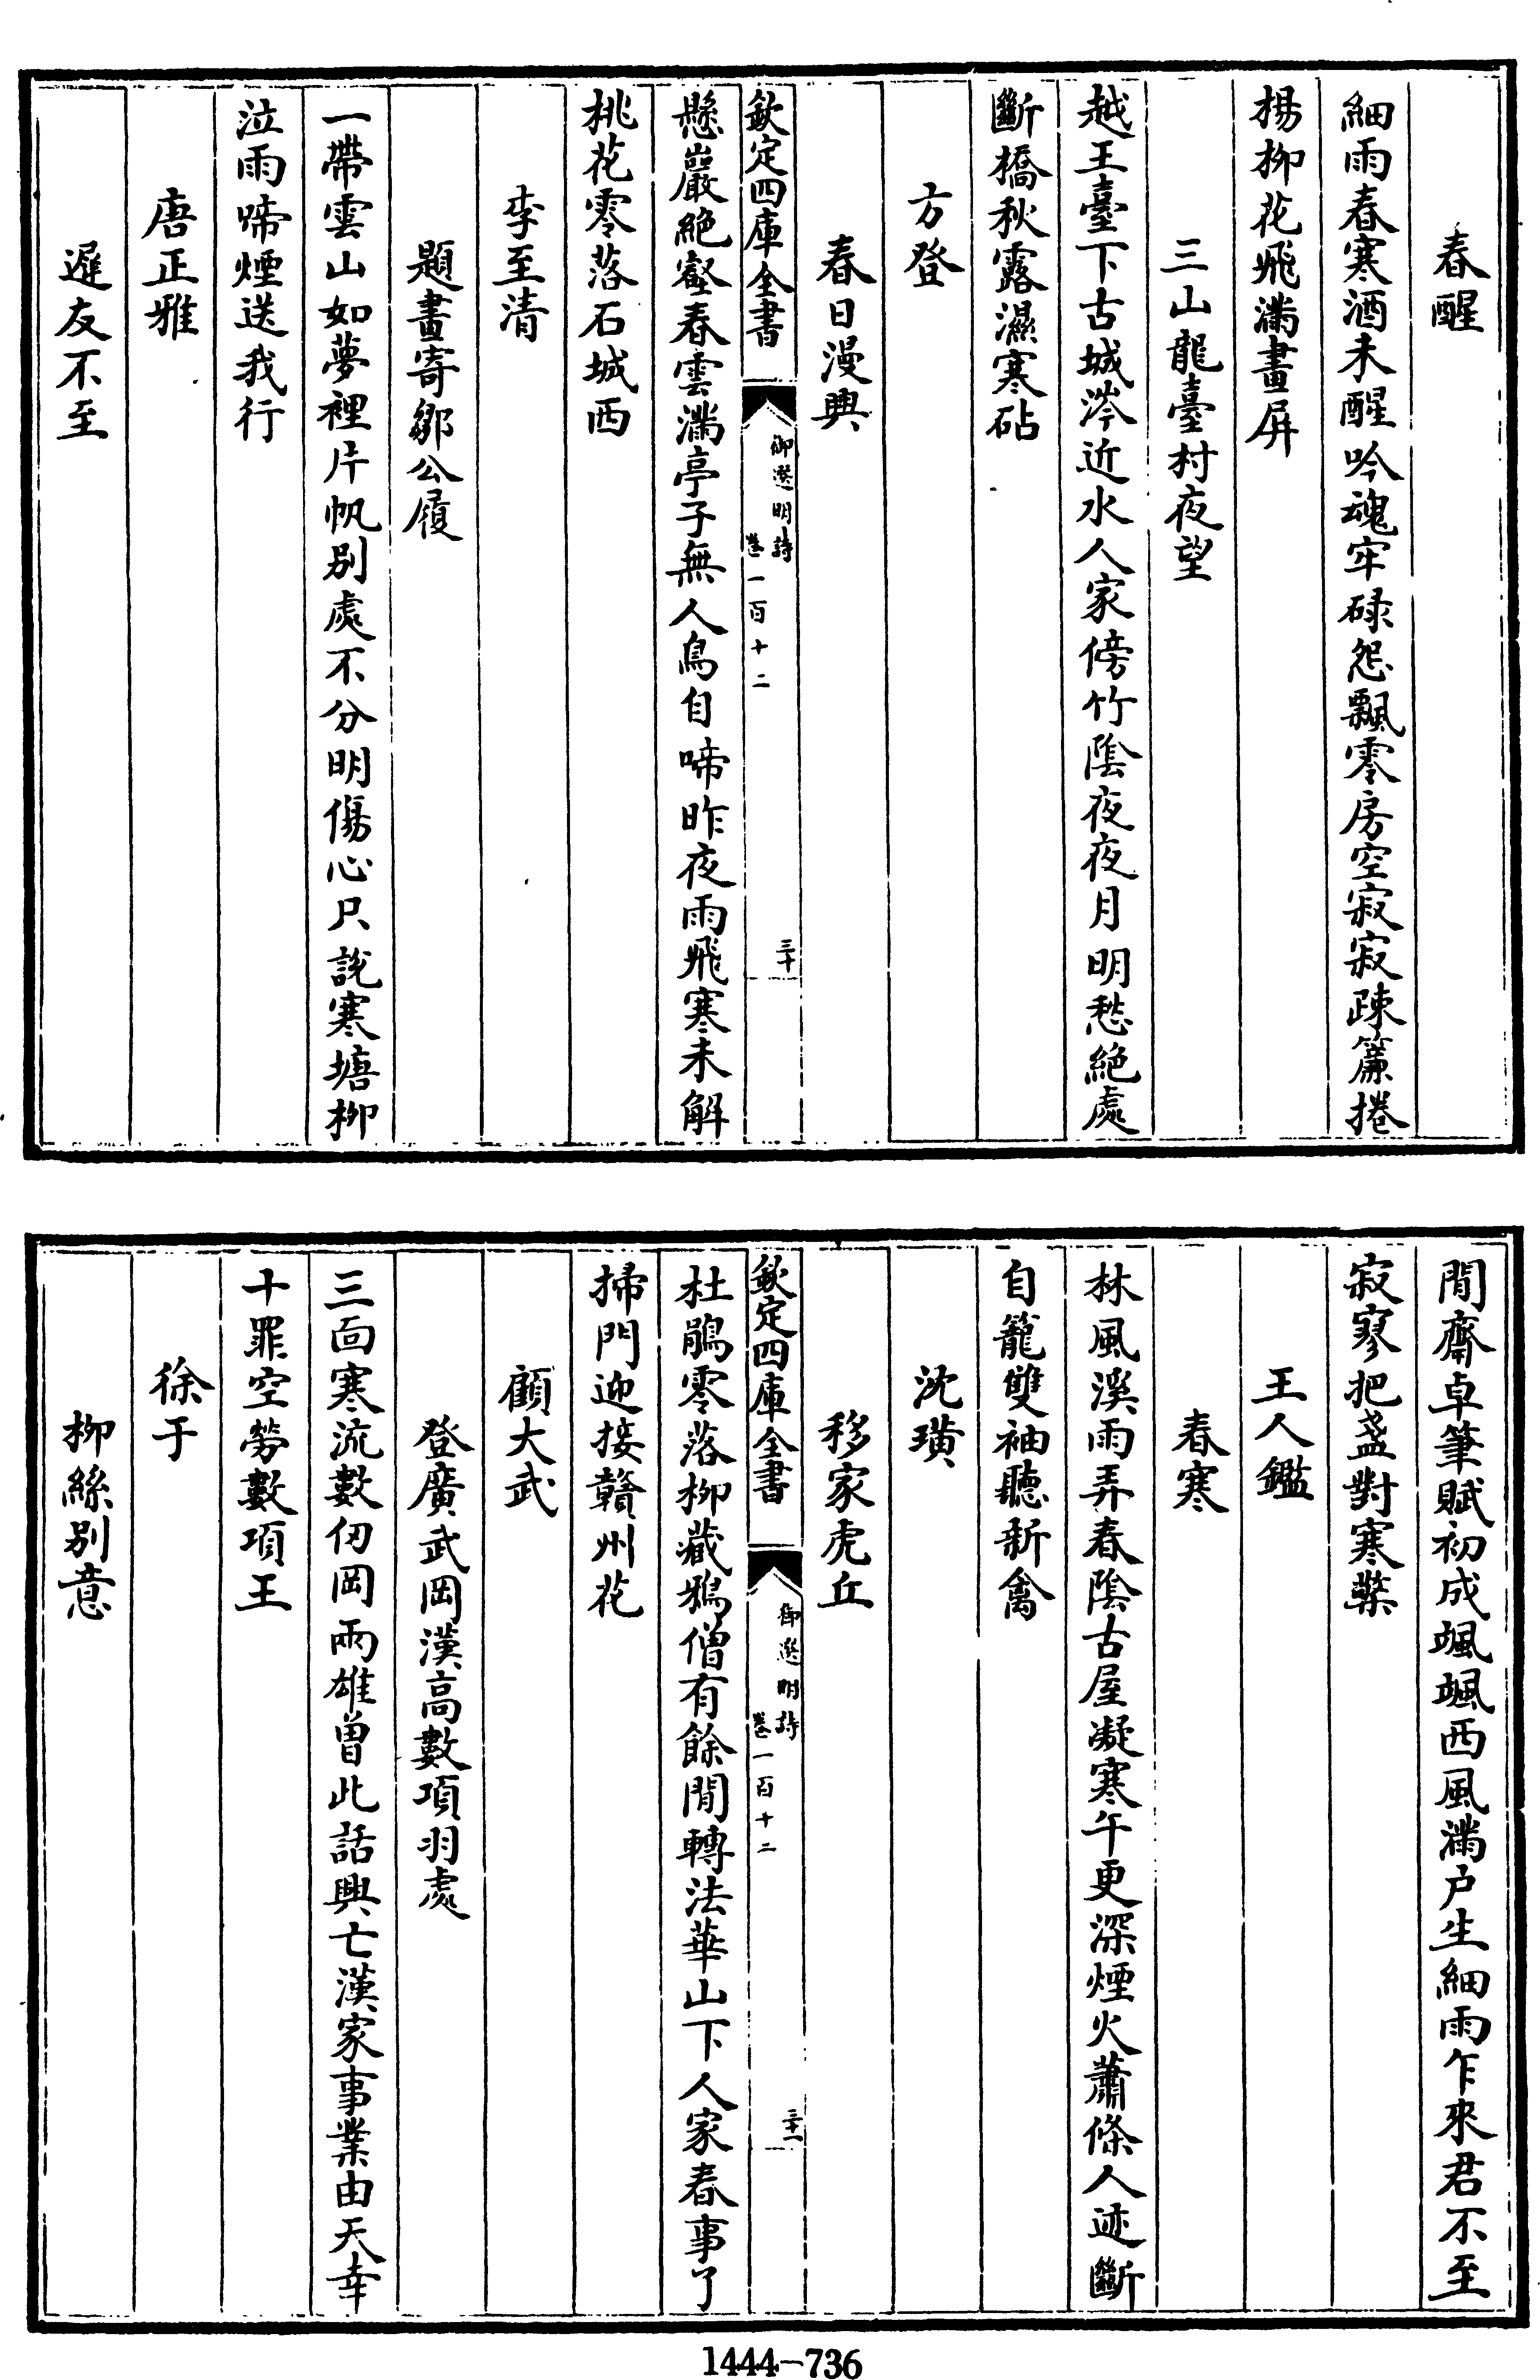 春醒
細雨春寒酒未醒吟魂牢碌怨飄零房空寂寂疎簾捲
楊柳花飛滿畫屏
三山龍臺村夜望
越王臺下古城涔近水人家傍竹陰夜夜月明愁絕處
斷橋秋露濕寒砧
方登
春日漫興
欽定四庫全書
御選明詩
卷一百十二
三十
懸巖絕壑春雲滿亭子無人鳥自啼昨夜雨飛寒未解
桃花零落石城西
李至清
題畫寄鄒公履
一帶雲山如夢裡片帆別處不分明傷心只說寒塘柳
泣雨啼煙送我行
唐正雅
遲友不至
閒齋卓筆賦初成颯颯西風滿戶生細雨乍來君不至
寂寥把盞對寒檠
王人鑑
春寒
林風溪雨弄春陰古屋凝寒午更深煙火蕭條人迹斷
自籠雙袖聽新禽
沈璜
移家虎丘
欽定四庫全書
御選明詩
卷一百十二
三十一
杜鵑零落柳藏鴉僧有餘閒轉法華山下人家春事了
掃門迎接贛州花
顧大武
登廣武岡漢高數項羽處
三面寒流數仞岡兩雄曾此話興亡漢家事業由天幸
十罪空勞數項王
徐于
柳絲別意
1444-736